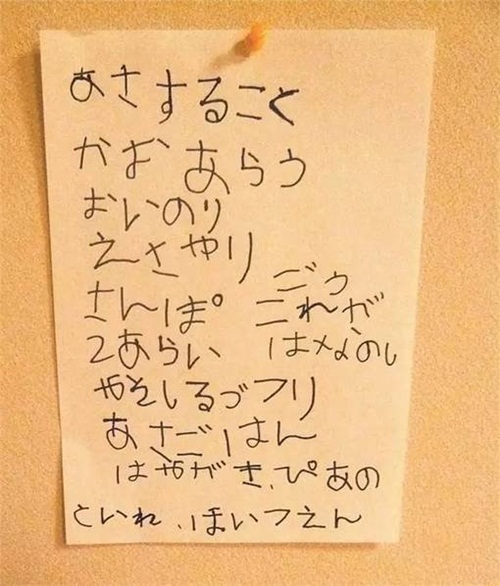 あさすること
かおあらう
おいのり
えさやり
ごう
さんぽ これが
てあらい
みそしるづくり
あさごはん
はみがき、ぴあの
といれ、ほいくえん